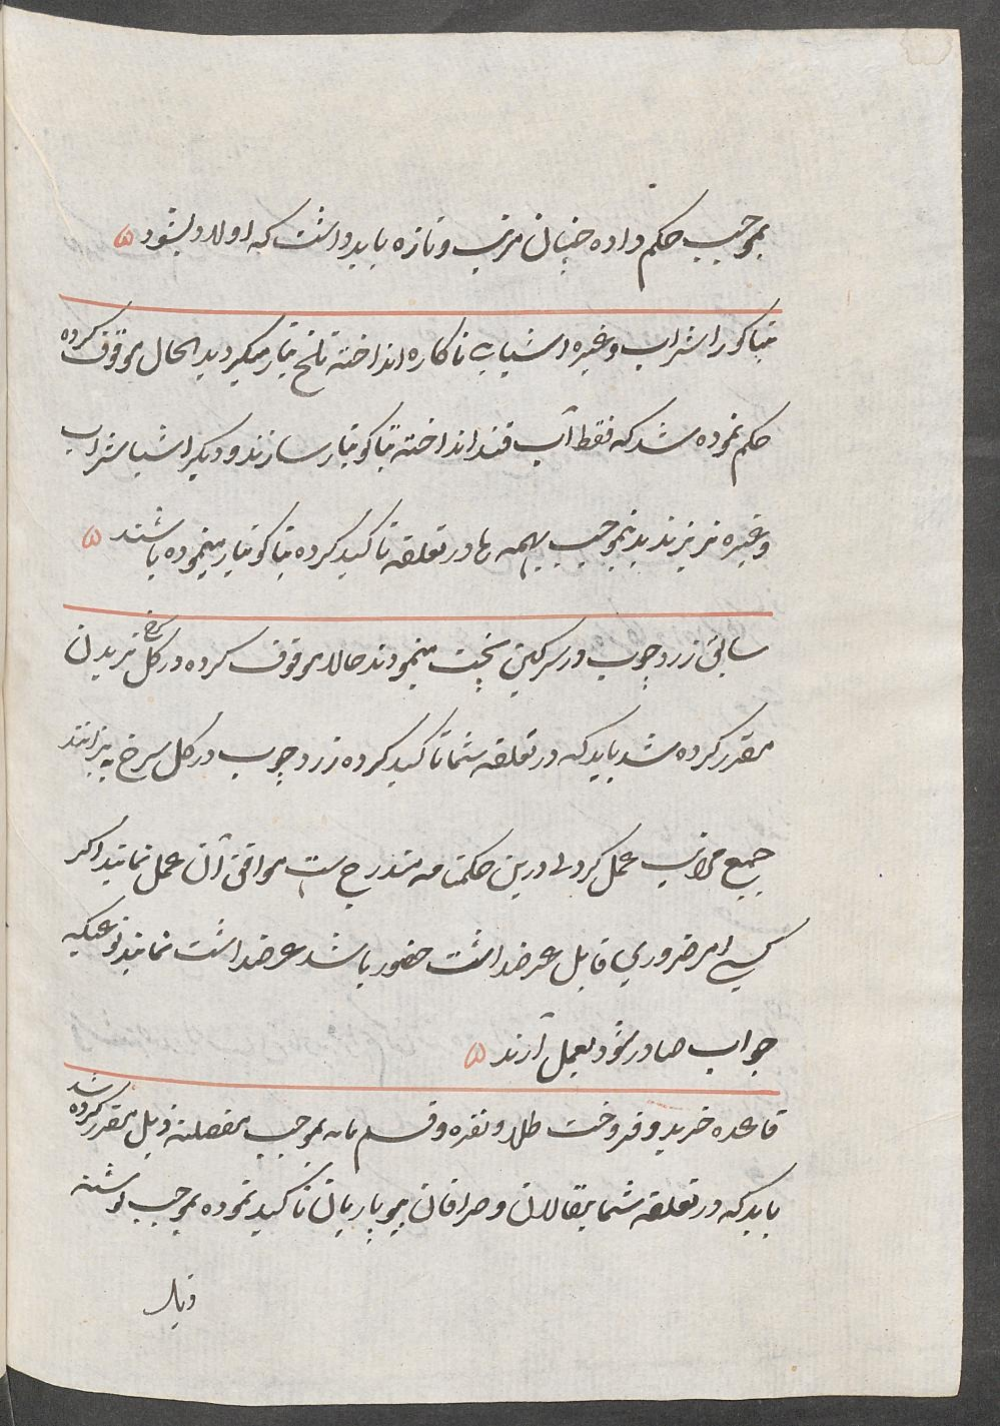 بموجب حکم داده چنان مرتب و تازه باید داشت که اولاد بشود ۵
تنباکو را شراب و غیره اشیای ناکاره انداخته تلخ تیار میکردید الحال موقوف کرده
حکم نموده شد که فقط آب قند انداخته تنباکو تیار سازند و دیگر اشیا شراب
و غیره نریزند بدینموجب بهمه ها در تعلقه تاکید کرده تنباکو تیار مینموده باشند ۵
سابق زردچوب در سرکین پخت مینمودند حالا موقوف کرده در کل سرخ پزیدن
مقرر کرده شد باید که در تعلقه شما تاکید کرده زردچوب در کل سرخ به پزانند
جمیع مراتب عمل کردنی درین حکمنامه مندرج ست موافق آن عمل نمایند اکر
کسی امر ضروری قابل عرضداشت حضور باشد عرضداشت نمایند نوعیکه
جواب صادر شود بعمل آرند ۵
قاعده خرید و فروخت طلا و نقره و قسم بموجب مفصله ذیل مقرر کرده شد
باید که در تعلقه شما بقالان و صرافان بیوپاریان تاکید نموده بموجب نوشته
ذیل